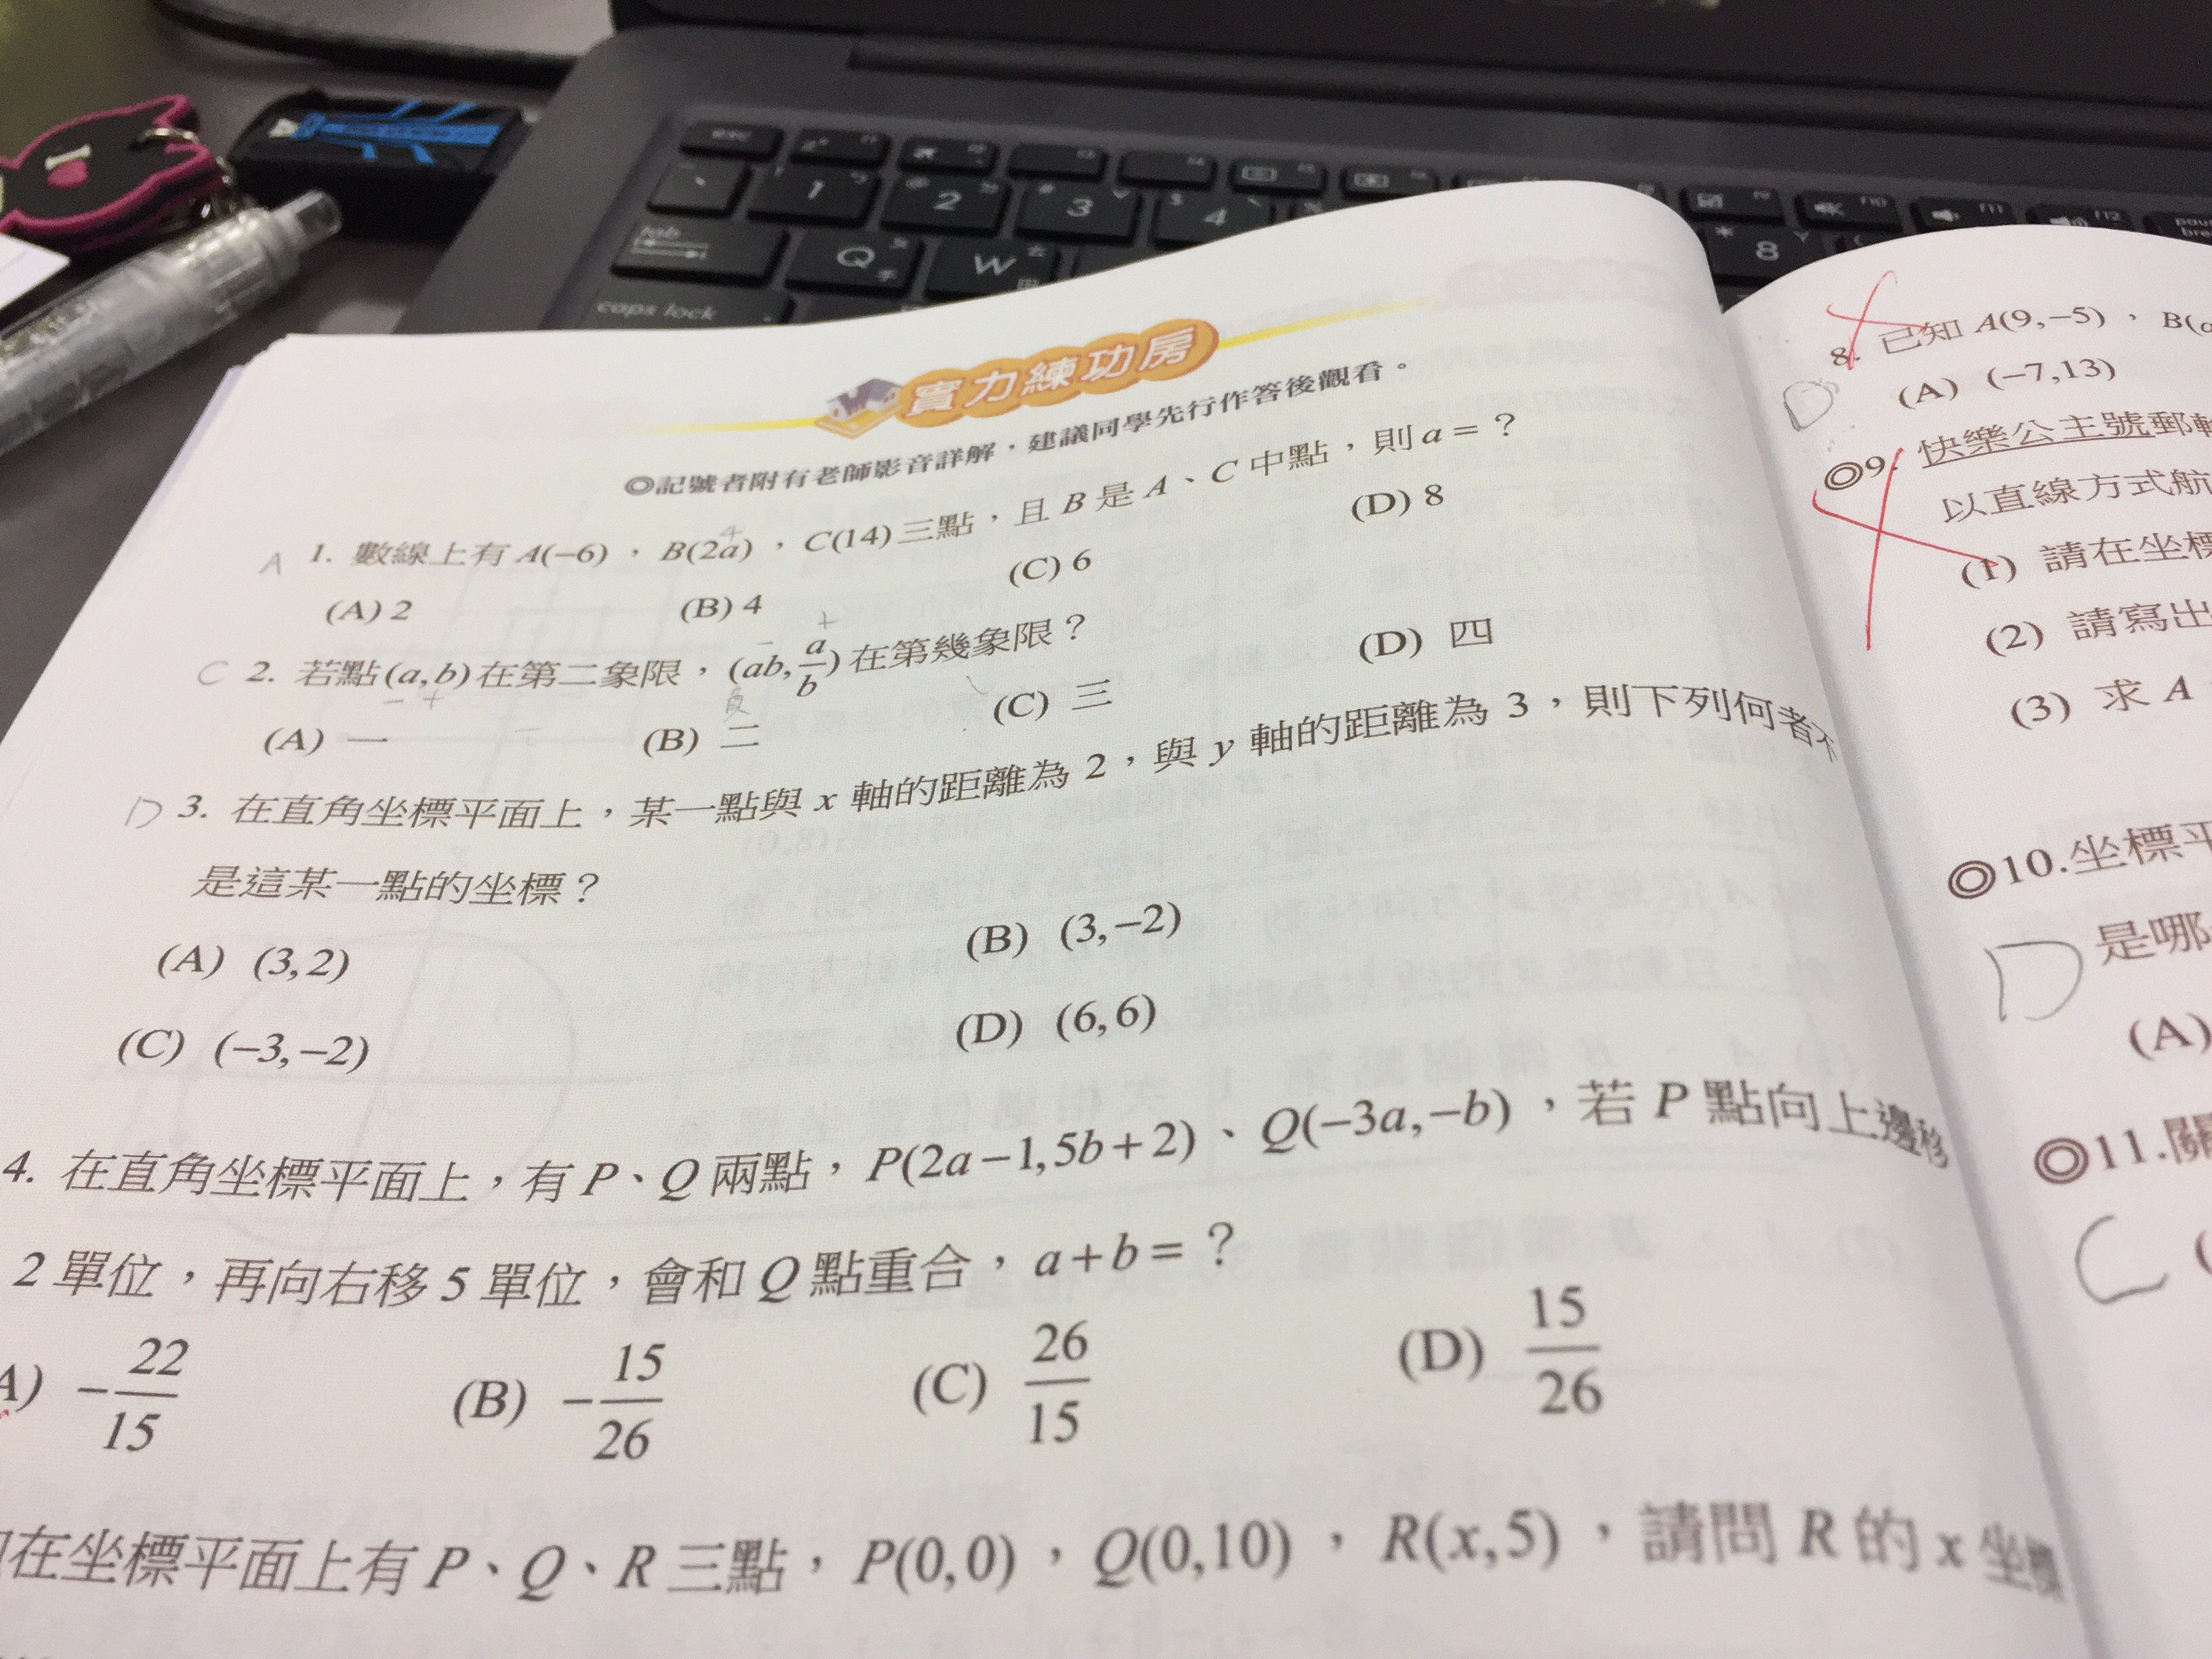 實力練功房
◎記號者附有老師影音詳解，建議同學先行作答後觀看。
A 1. 數線上有 A(−6)，B(2a)，C(14) 三點，且 B 是 A、C 中點，則 a = ？
4
(A) 2 (B) 4 (C) 6 (D) 8
C 2. 若點 (a, b) 在第二象限，(ab, a/b) 在第幾象限？
− + − + 負
(A) 一 (B) 二 (C) 三 (D) 四
D 3. 在直角坐標平面上，某一點與 x 軸的距離為 2，與 y 軸的距離為 3，則下列何者不
是這某一點的坐標？
(A) (3, 2) (B) (3, −2)
(C) (−3, −2) (D) (6, 6)
4. 在直角坐標平面上，有 P、Q 兩點，P(2a−1, 5b+2)、Q(−3a, −b)，若 P 點向上邊移
2 單位，再向右移 5 單位，會和 Q 點重合，a+b = ？
A) −22/15 (B) −15/26 (C) 26/15 (D) 15/26
在坐標平面上有 P、Q、R 三點，P(0,0)，Q(0,10)，R(x,5)，請問 R 的 x 坐標
8. 已知 A(9,−5)，B(
D
(A) (−7,13)
◎9. 快樂公主號郵
以直線方式航
(1) 請在坐標
(2) 請寫出
(3) 求 A
◎10. 坐標平
D 是哪
(A)
◎11. 關
C (
esc
1 2 3 4 8
tab Q 手 W 田
caps lock
f10 f11 f12